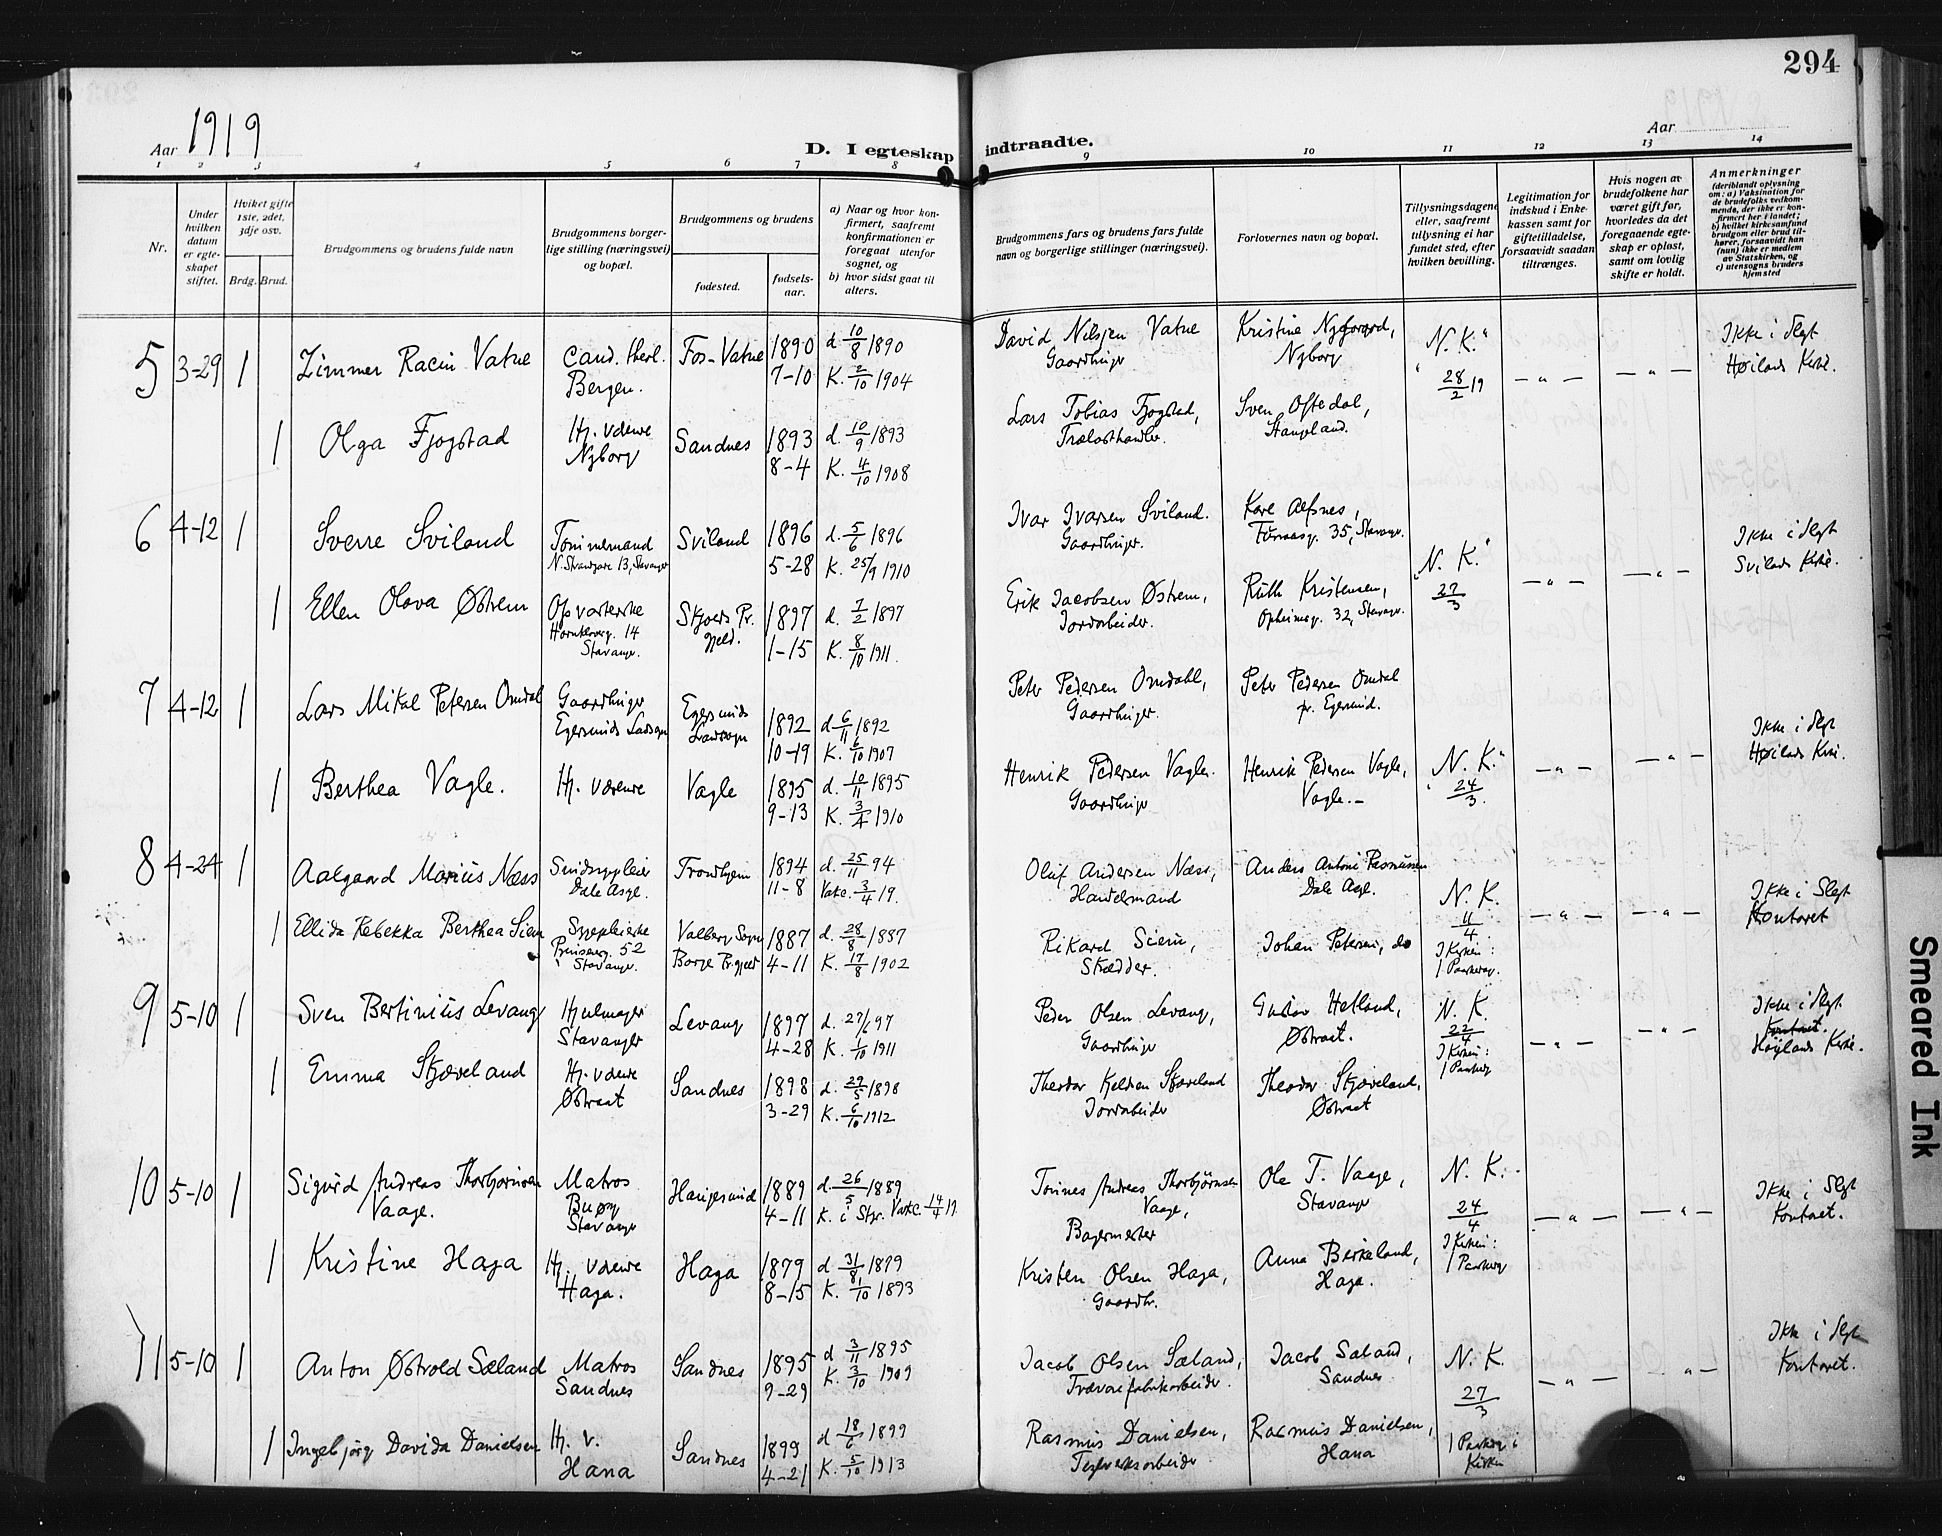 294
Aar 1919
D. I egteskap indtraadte.
Aar
1 2 3 4 5 6 7 8 9 10 11 12 13 14
Nr.
Under hvilken datum er egteskapet stiftet.
Hviket gifte 1ste, 2det, 3dje osv.
Brdg. Brud.
Brudgommens og brudens fulde navn
Brudgommens borgerlige stilling (næringsvei) og bopæl.
Brudgommens og brudens
fødested.
fødselsaar.
a) Naar og hvor konfirmert, saafremt konfirmationen er foregaat utenfor sognet, og
b) hvor sidst gaat til alters.
Brudgommens fars og brudens fars fulde navn og borgerlige stillinger (næringsvei).
Forlovernes navn og bopæl.
Tillysningsdagene eller, saafremt tillysning ei har fundet sted, efter hvilken bevilling.
Legitimation for indskud i Enkekassen samt for giftetilladelse, forsaavidt saadan tiltrænges.
Hvis nogen av brudefolkene har været gift før, hvorledes da det foregaaende egteskap er opløst, samt om lovlig skifte er holdt.
Anmerkninger
(deriblandt oplysning om: a) Vaksination for de brudefolks vedkommende, der ikke er konfirmert her i landet; b) hvilket kirkesamfund brudgom eller brud tilhører, forsaavidt han (hun) ikke er medlem av Statskirken, og c) utensogns bruders hjemsted
5 3-29 1 Zimmer Racin Vatne Cand. theol. Bergen. Fos-Vatne 1890 7-10 d. 10/8 1890 K. 2/10 1904
David Nilsen Vatne Gaardbruger Kristine Nyborg N.K. 28/2 19 — " — — " — Ikke i Slegt Høilands Kirke.
1 Olga Fjogstad Hj. værende Nyborg Sandnes 1893 8-4 d. 10/9 1893 K. 4/10 1908
Lars Tobias Fjogstad, Trælasthandler. Sven Oftedal, Stangeland.
6 4-12 1 Sverre Sviland Tømmermand N. Strandgate 13, Stavanger Sviland 1896 5-28 d. 5/6 1896 K. 25/9 1910
Ivar Ivarsen Sviland. Gaardbruger. Kare Alfsnes, 35, Stavanger. N. K. 27/3 — " — — " — Ikke i Slegt Svilands Kirke.
1 Ellen Olava Østrem Opvarterske 14 Stavanger. Skjoers Pr. gjeld. 1897 1-15 d. 7/2 1897 K. 8/10 1911.
Erik Jacobsen Østrem, Jordarbeider. Ruth Kristensen, Opheimsg. 32, Stavanger.
7 4-12 1 Lars Mikal Petersen Omdal Gaardbruger Egersunds Landsogn Egersunds Landsogn 1892 10-19 d. 6/11 1892 K. 6/10 1907
Peter Pedersen Omdahl, Gaardbruger. Peter Pedersen Omdal pr. Egersund.
1 Berthea Vagle. Hj. værende Vagle 1895 9-13 d. 10/11 1895 K. 3/4 1910
Henrik Pedersen Vagle. Gaardbruger Henrik Pedersen Vagle, Vagle.- N. K. 24/3. — " — — " — Ikke i Slegt Høilands Kirke.
8 4-24 1 Aalgaard Marius Næss Sindssygepleier Dale Asyl. Trondhjem 1894 11-8 d. 25/11 94 Vakc. 3/4 19.
Oluf Andersen Næss, Handelsmand Anders Antoni Rasmussen Dale Asyl. N. K. 11/4 I Kirken: 1 Pars — " — — " — Ikke i Slegt Kontoret
1 Ellida Rebekka Berthea Siem Sygepleierske Prinsensg. 52 Stavanger. Valberg Sogn Borge Pr.gjeld 1887 4-11 d. 28/8 1887 K. 17/8 1902
Rikard Siem, Skrædder. Johan Petersen, do
9 5-10 1 Sven Bertinius Levang Hjulmager Stavanger Levang 1897 4-28 d. 27/6 97 K. 1/10 1911
Peder Olsen Levang, Gaardbruger Gustav Hetland, Østraat. N. K. 22/4 I Kirken: 1 — " — — " — Ikke i Slegt. Kontoret. Høylands Kirke.
1 Emma Skjæveland Hj. værende Østraat Sandnes 1898 3-29 d. 29/5 1898 K. 6/10 1912
Theodor Kjeldsen Skjæveland Jordarbeider Theodor Skjæveland, Østraat
10 5-10 1 Sigurd Andreas Thorbjørnsen Vaage. Matros Buøy Stavanger Haugesund 1889 4-11 d. 26/5 1889 K. i Stgr. Vakc. 14/4 19
Tønnes Andreas Thorbjørnsen Vaage, Bagermester Ole T. Vaage, Stavanger N. K. 24/4 I Kirken: 1 — " — — " — Ikke i Slegt Kontoret.
1 Kristine Haga Hj. værende Haga. Haga 1879 8-15 d. 31/8 1879 K. 1/10 1893
Kristen Olsen Haga, Gaardbr. Anna Birkeland, Haga.
11 5-10 1 Anton Østvold Sæland Matros Sandnes Sandnes 1895 9-29 d 3/11 1895 K. 3/10 1909
Jacob Olsen Sæland, Trævarefabrikarbeider. Jacob Sæland, Sandnes N. K. 27/3 — " — " — Ikke i Slegt Kontoret.
1 Ingebjørg Davida Danielsen Hj. v. Hana Sandnes 1899 4-21 d 18/6 1899 K. 5/10 1913
Rasmus Danielsen, Teglverksarbeider Rasmus Danielsen, Hana 1 i Kirken
Smeared Ink